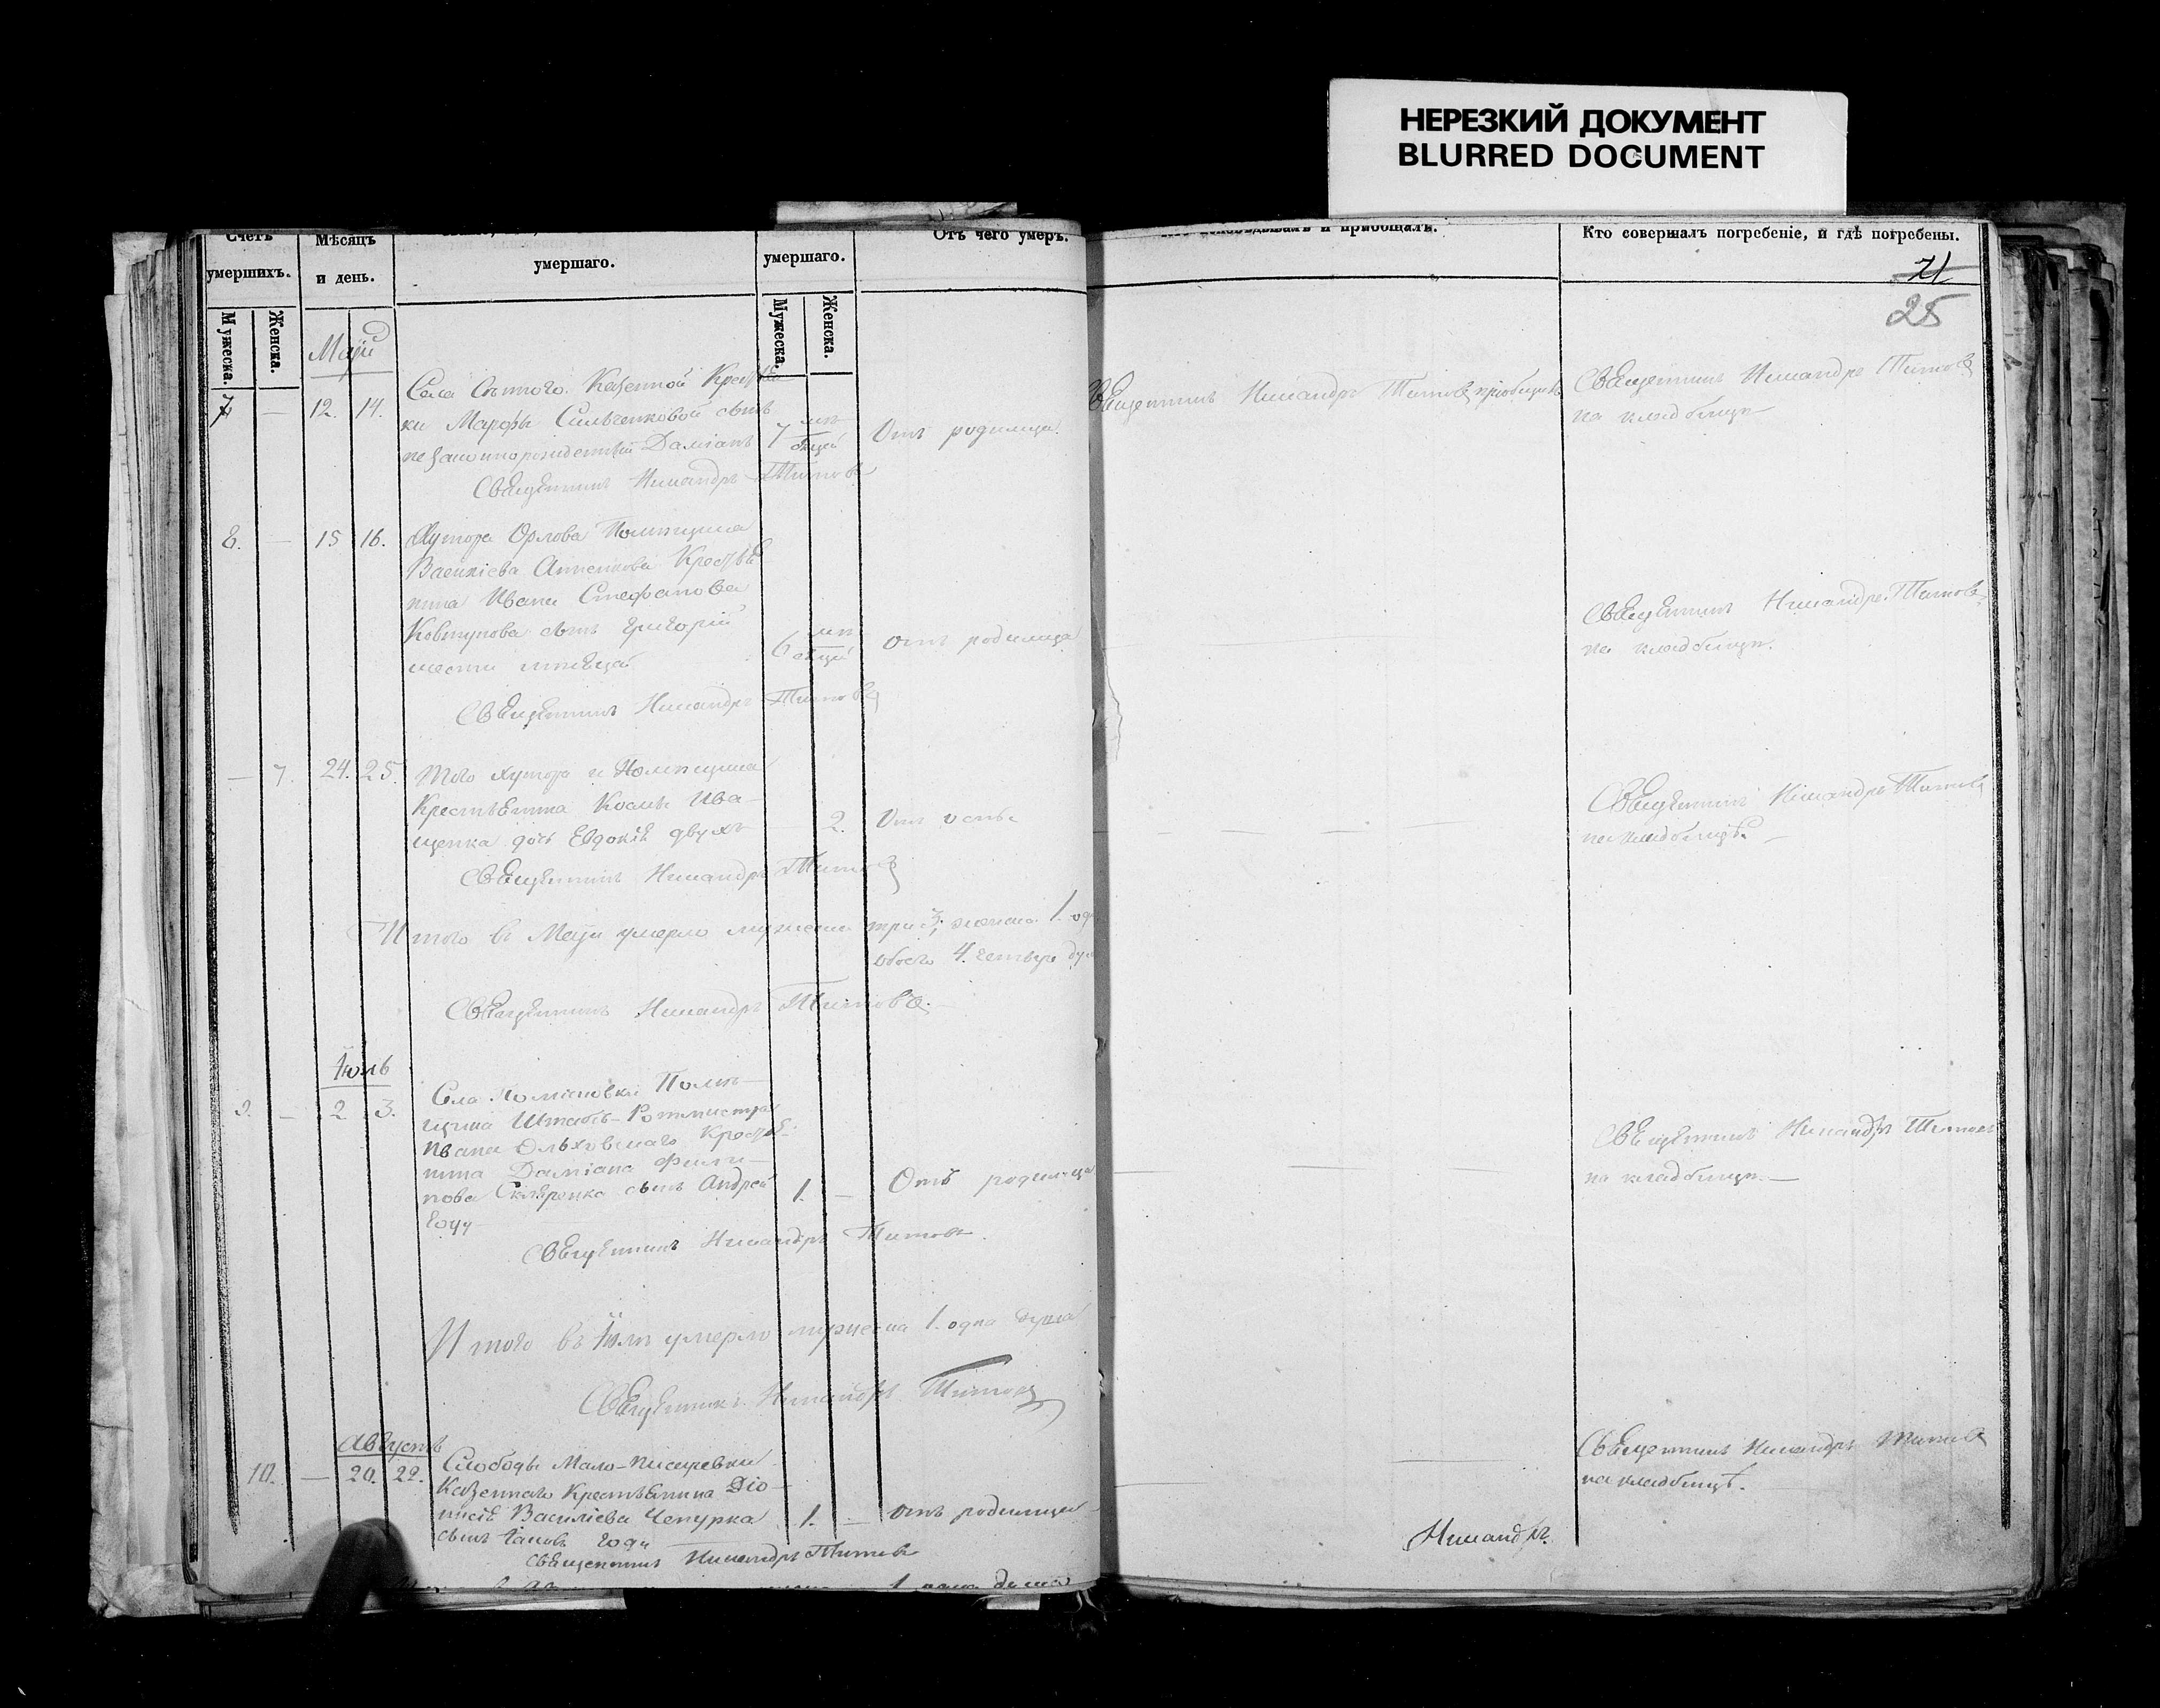 НЕРЕЗКИЙ ДОКУМЕНТ
BLURRED DOCUMENT
Счетъ
умершихъ.
Мѣсяцъ
и день.
умершаго.
умершаго.
Отъ чего умеръ.
и приобщалъ.
Кто совершалъ погребеніе, и гдѣ погребены.
71
25
Мужеска.
Женска.
Мужеска.
Женска.
Маій
7 — 12. 14.
Села Казенной Крестья
ки Марфы Сильченковой сынъ
незаконнорожденный Даміанъ
7 Отъ родимца.
Священникъ Никандръ Титовъ
Священникъ Никандръ Титовъ пріобщилъ
Священникъ Никандръ Титовъ
на кладбищѣ
8. — 15 16.
Хутора Орлова Помѣщика
Анненкова Крестья
нина Ивана Стефанова
Ковтунова сынъ Григорій
шести
6 отъ родимца
Священникъ Никандръ Титовъ
Священникъ Никандръ Титовъ
на кладбищѣ.
— 7. 24. 25.
Того хутора и Помѣщика
Крестьянина Космы Ива-
щенка дочь Евдокія двухъ
2. Отъ оспы
Священникъ Никандръ Титовъ
Священникъ Никандръ Титовъ
на кладбищѣ. —
Итого въ Маіи умерло мужеска три 3, женска 1.
обоего 4. четыре
Священникъ Никандръ Титовъ.
Іюль
9. — 2. 3.
Села Помѣ-
щика Штабсъ-Ротмистра
Ивана Ольховскаго Крестья-
нина Даміана Филип-
пова Скляренка сынъ Андрей
году
1. — Отъ родимца
Священникъ Никандръ Титовъ.
Священникъ Никандръ Титовъ
на кладбищѣ. —
Итого въ Іюлѣ умерло мужеска 1. одна душа
Священникъ Никандръ Титовъ
Августъ
10. — 20. 22.
Слободы Мало-Писаревки
Казеннаго Крестьянина Діо-
нисія Василіева Чепурка
сынъ Іаковъ году
1. — отъ родимца
Священникъ Никандръ Титовъ
Священникъ Никандръ Титовъ
на кладбищѣ.
Никандръ.
1 одна душа